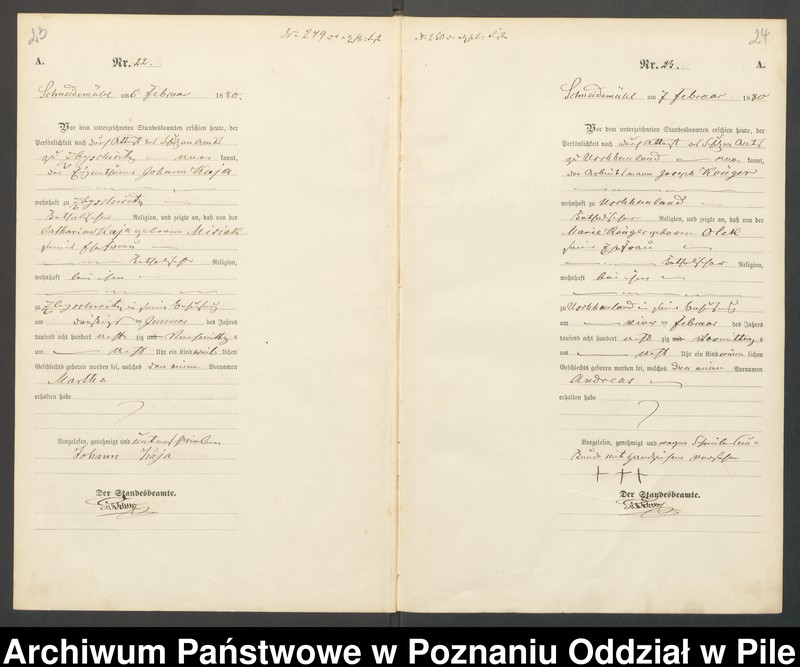 23
A. Nr. 22.
Schneidemühl am 6 Februar 1880.
Vor dem unterzeichneten Standesbeamten erschien heute, der
Persönlichkeit nach durch Attest des Schulzen Amts
zu kannt,
der Eigenthümer Johann Kaja
wohnhaft zu
katholischer Religion, und zeigte an, daß von der
Catharina Kaja geborene Misiak
seiner Ehefrau
katholischer Religion,
wohnhaft bei ihm
zu in seiner Behausung
am dreißigsten Januar des Jahres
tausend acht hundert achtzig Nachmittag s
um acht Uhr ein Kind weiblichen
Geschlechts geboren worden sei, welches den einen Vornamen
Martha
erhalten habe
Vorgelesen, genehmigt und unterschrieben
Johann Kaja
Der Standesbeamte.
24
Nr. 23. A.
Schneidemühl am 7 Februar 1880
Vor dem unterzeichneten Standesbeamten erschien heute, der
Persönlichkeit nach durch Attest des Schulzen Amts
zu Uschhauland kannt,
der Arbeitsmann Joseph Krüger
wohnhaft zu Uschhauland
katholischer Religion, und zeigte an, daß von der
Marie Krüger geborene Olek
seiner Ehefrau
katholischer Religion,
wohnhaft bei ihm
zu Uschhauland in seiner Behausung
am vier ten Februar des Jahres
tausend acht hundert achtzig Vormittag s
um acht Uhr ein Kind männlichen
Geschlechts geboren worden sei, welches den einen Vornamen
Andreas
erhalten habe
Vorgelesen, genehmigt und wegen Schreibens un-
kunde mit Handzeichen versehen
+++
Der Standesbeamte.
Archiwum Państwowe w Poznaniu Oddział w Pile